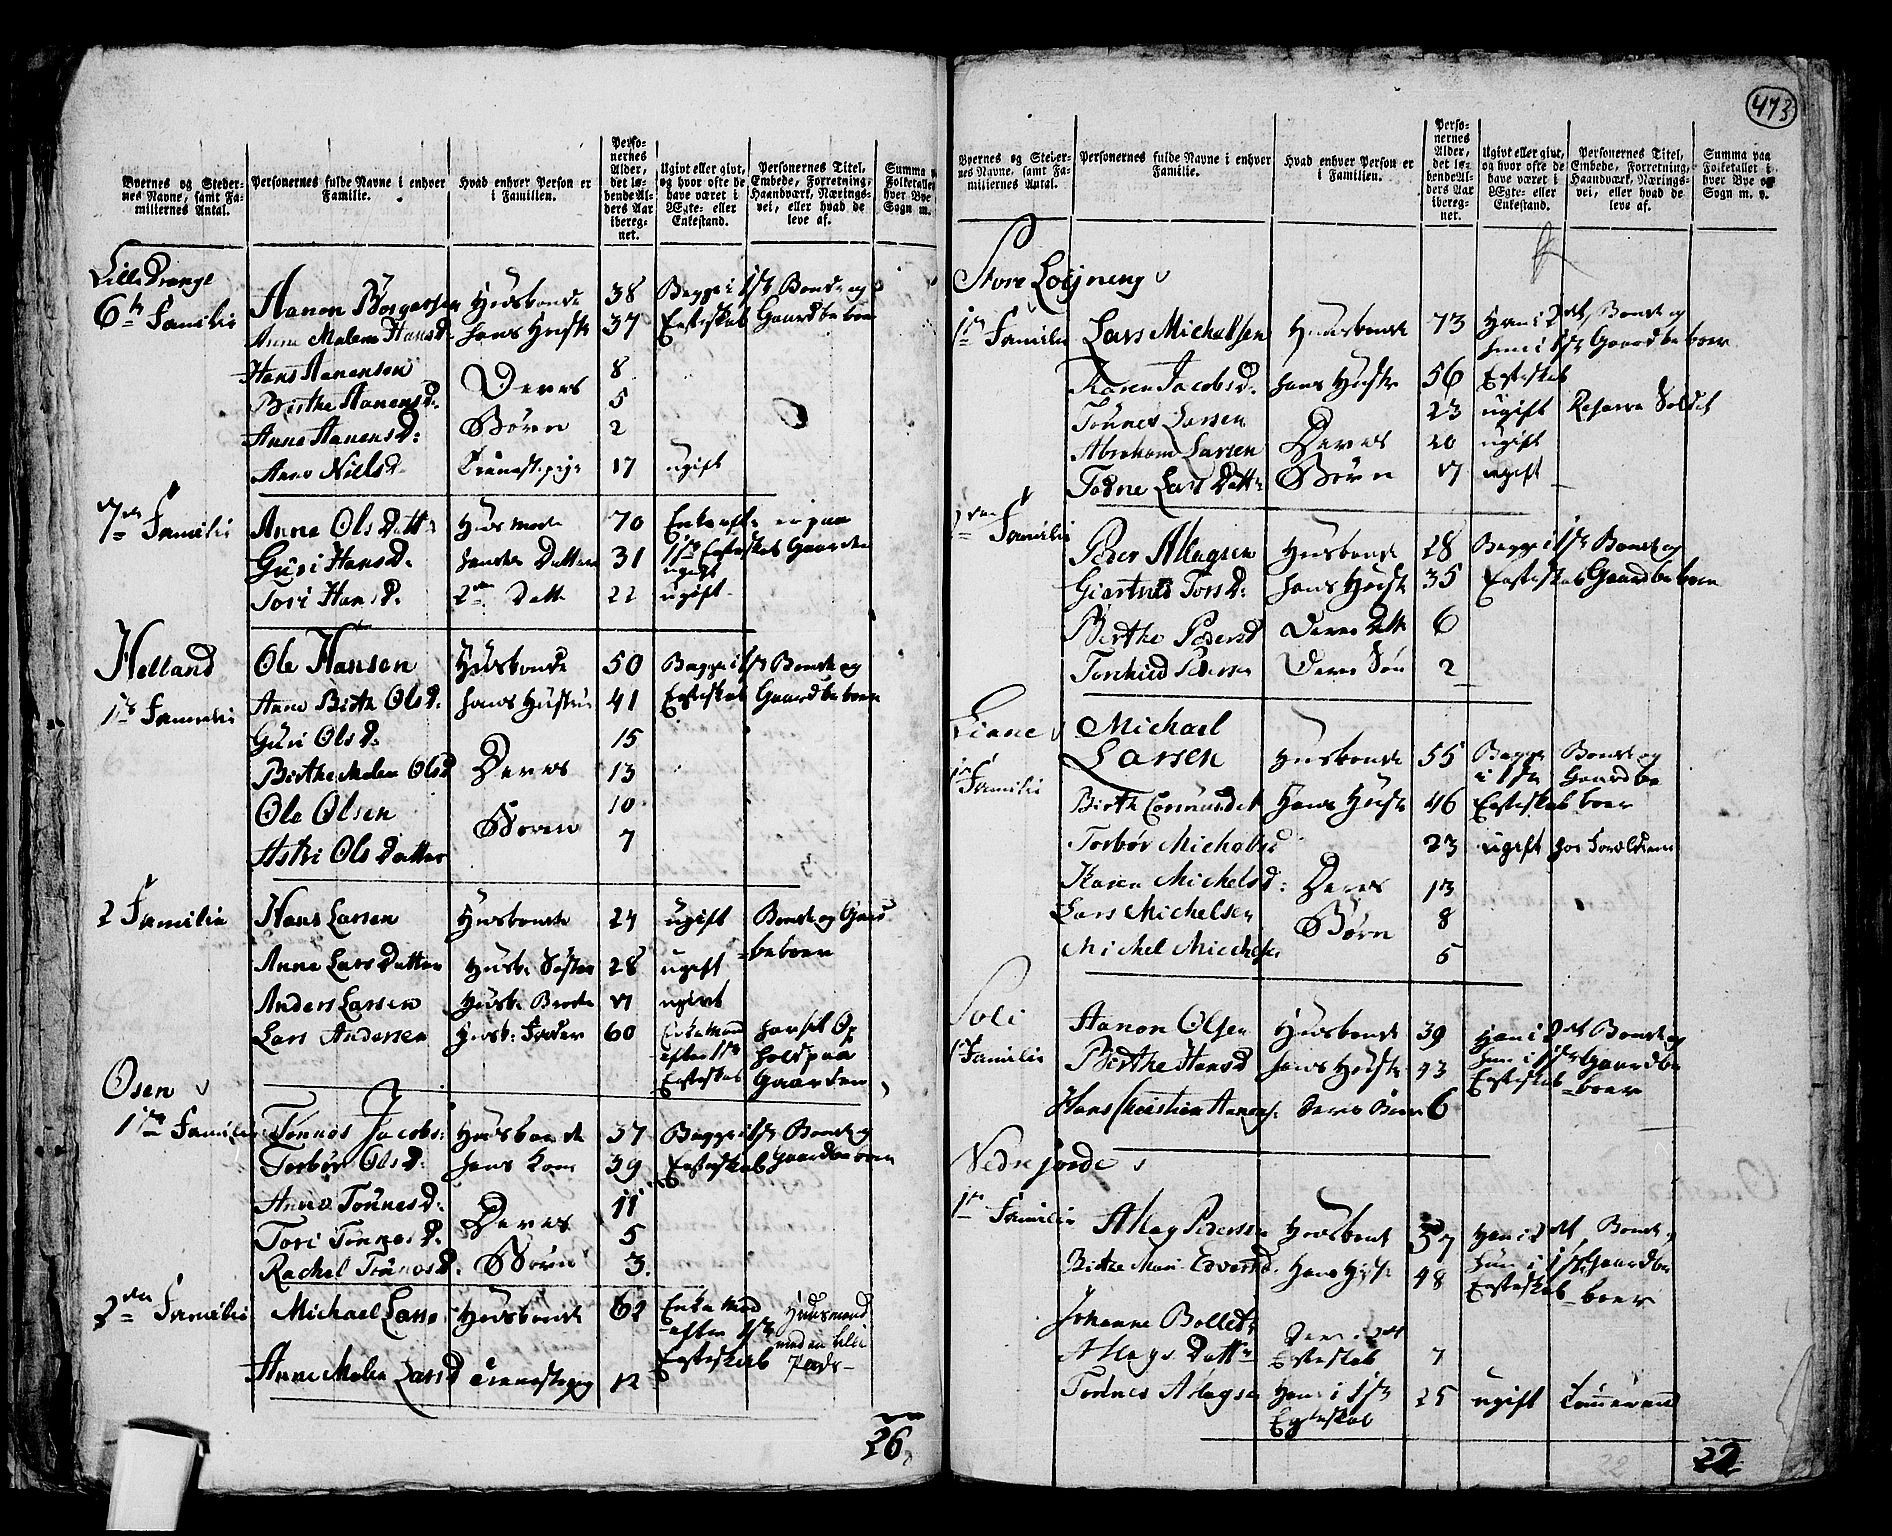 473
Byernes og Steder-
nes Navne, samt Fa-
miliernes Antal.
Personernes fulde Navne i enhver
Familie.
Hvad enhver Person er
i Familien.
Perso-
nernes
Alder,
det lø-
bende Al-
ders Aar
ibereg-
net.
Ugivt eller givt,
og hvor ofte de
have været i
Ægte- eller
Enkestand.
Personernes Titel,
Embede, Forretning,
Haandværk, Nærings-
vei, eller hvad de
leve af.
Summa
Folketallet
hver Bye
Sogn m.
Lille Drange
6te Familie Aanon Børgesen Huusbonde 38 Begge i 1ste Bonde og
Anne Malene Hansd. hans Hustr 37 Egteskab Gaardbeboer
Hans Aanensen 8
Birthe Aanensd: Deres 5
Anne Aanensd: Børn 2
Anne Nielsd. Tienestepige 17 ugift
7de Familie Anne Ols Datter Huusmoder 70 Enke eft: er paa
Guri Hansd. hendes Datter 31 1ste Egteskab Gaarden
ugift
Tori Hansd. 2den Datt 22 ugift
Helland Ole Hansen Huusbonde 50 Begge i 1ste Bonde og
1ste Familie Anne Birthe Olsd. hans Hustrue 41 Egteskab Gaardbeboer
Guri Olsd. 15
Birthe Malen Olsd Deres 13
Ole Olsen 10
Børn
Astri Ols Datter 7
2 Familie Hans Larsen Huusbonde 24 ugift Bonde og Gaard
Anne Lars Datter Husb: Søster 28 ugift beboer
Anders Larsen Husb: Broder 17 ugivt
Lars Andersen Husb: Fader 60 Enkemand har sit Op
efter 1ste hold paa
Egteskab Gaarden
Osen
1ste Familie Tønnes Jacobs: Huusbonde 37 Begge i 1ste Bonde og
Torbør Olsd. hans Kone 39 Egteskab Gaardbeboer
Anne Tønnesd. 11
Deres
Tori Tønnesd. 5
Rachel Tønnesd. Børn 3.
2den Familie Michael Larse Huusbonde 62 Enkemand Huusmand
efter 1ste med en lille
Egteskab Plads
Anne Malen Larsd Tienestepig 12
26
Byernes og Steder-
nes Navne, samt Fa-
miliernes Antal.
Personernes fulde Navne i enhver
Familie.
Hvad enhver Person er
i Familien.
Perso-
nernes
Alder,
det lø-
bende Al-
ders Aar
ibereg-
net.
Ugivt eller givt,
og hvor ofte de
have været i
Ægte- eller
Enkestand.
Personernes Titel,
Embede, Forretning,
Haandværk, Nærings-
vei, eller hvad de
leve af.
Summa paa
Folketallet i
hver Bye og
Sogn m. v.
Store Løgning
1ste Familie Lars Michelsen Huusbonde 73 Han i 2det, Bonde og
hun i 1ste Gaardbeboer
Karen Jacobsd. hans Hustr 56 Egteskab
Tønnes Larsen 23 ugift Reserve Soldat
Abraham Larsen Deres 20 ugift
Todne Lars Datter Børn 17 ugift
2den Familie
Peder Allagsen Huusbonde 28 Begge i 1ste Bonde og
Giertrud Torsd. hans Hustr 35 Egteskab Gaardbeboer
Birthe Pedersd Deres Datt 6
Torkild Pedersen Deres Søn 2
Liane Michael
Larsen Huusbonde 55 Begge Bonde og
1ste Familie i 1ste Gaardbe
Birthe Hans Hustr 46 Egteskab boer
Torbør Michelsd 23 ugift hos Foreldrene
Karen Michelsd: Deres 13
Lars Michelsen 8
Børn
Michel Michels: 5
Soli Aanon Olsen Huusbonde 39 Han i 2det Bonde og
1 Familie hun i 1ste Gaardbe
Birthe Hansd hans Hustr 43 Egteskab boer
Hans Christian Aanens: Deres Barn 6
Nedre jorde
1ste Familie Allag Pedersen Huusbond 57 Han i 2det, Bonde og
hun i 1ste Gaardbe
Birthe Mari hans Hustr 48 Egteskab boer
Johanne Bollette
Allags Datter Deres i 2det
Egteskab 7
Tønnes Allagsen Hans i 1ste 25 ugift
Egteskab
22
22